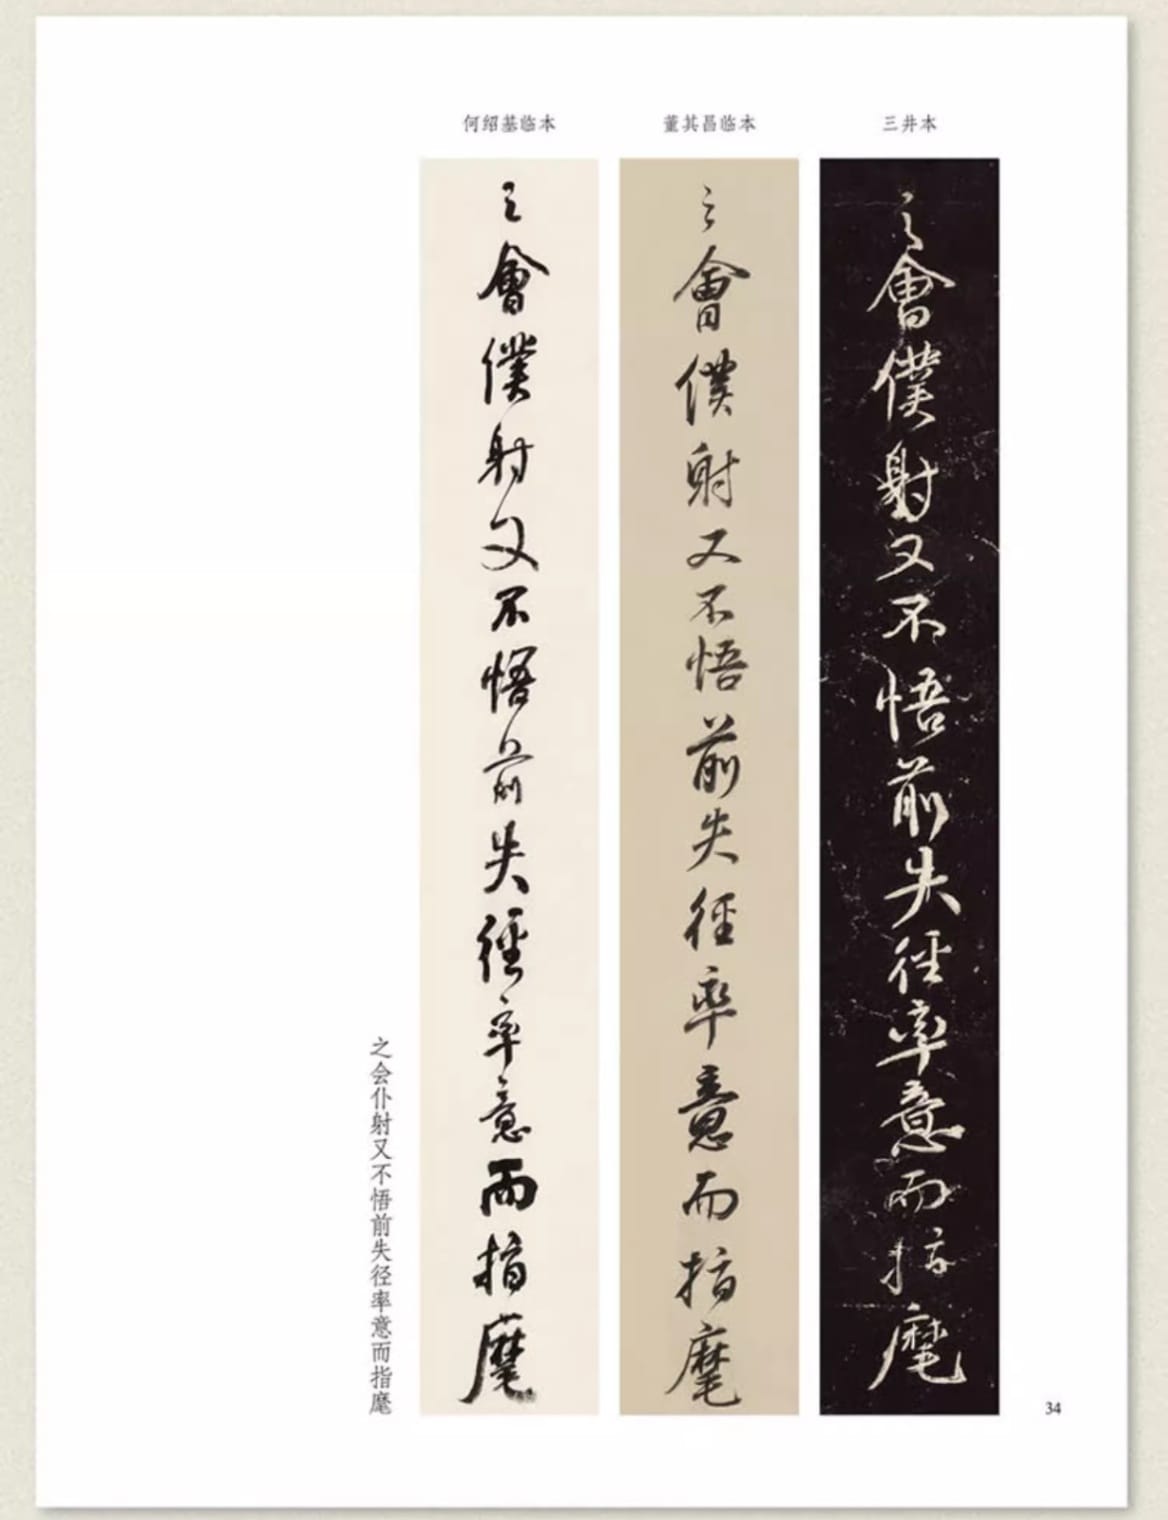 三井本
董其昌临本
何绍基临本
之會僕射又不悟前失徑率意而指麾
之會僕射又不悟前失徑率意而指麾
之會僕射又不悟前失徑率意而指麾
之会仆射又不悟前失径率意而指麾
34